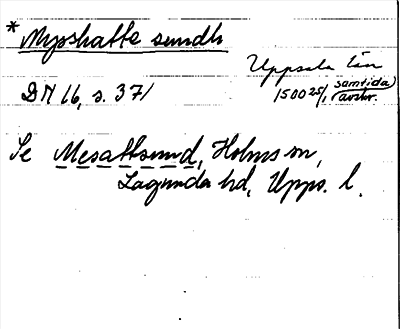 * Mysshatte sundh
Uppsala län
DN 16, s. 371
1500 25/1, (samtida avskr.)
Se Mesattsund, Holms sn,
Lagunda hd, Upps. l.